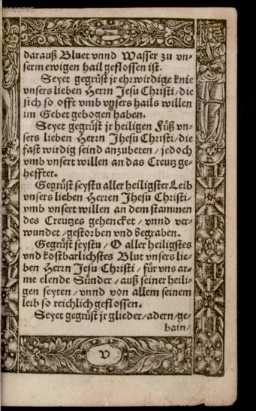 darauß Bluet vnnd Wasser zu vn-
serm ewigen hail geflossen ist.
Seyet gegrüst jr ehrwirdige knie
vnsers lieben Herrn Jesu Christi/die
sich so offt vmb vnsers hails willen
im Gebet gebogen haben.
Seyet gegrüst jr heiligen Füß vn-
sers lieben Herrn Jhesu Christi/die
fast wirdig seind anzubeten/jedoch
vmb vnsert willen an das Creutz ge-
hefftet.
Gegrüst seystu aller heiligster Leib
vnsers lieben Herren Jhesu Christi/
vmb vnsert willen an dem stammen
des Creutzes gehencket/vnnd ver-
wundet/gestorben vnd begraben.
Gegrüst seystu/O aller heiligstes
vnd kostbarlichstes Blut vnsers lie-
ben Herrn Jesu Christi/für vns ar-
me elende Sünder/auß seiner heili-
gen seyten/vnnd von allem seinem
leib so reichlich geflossen.
Seyet gegrüst jr glieder/adern/ge-
bain/
V